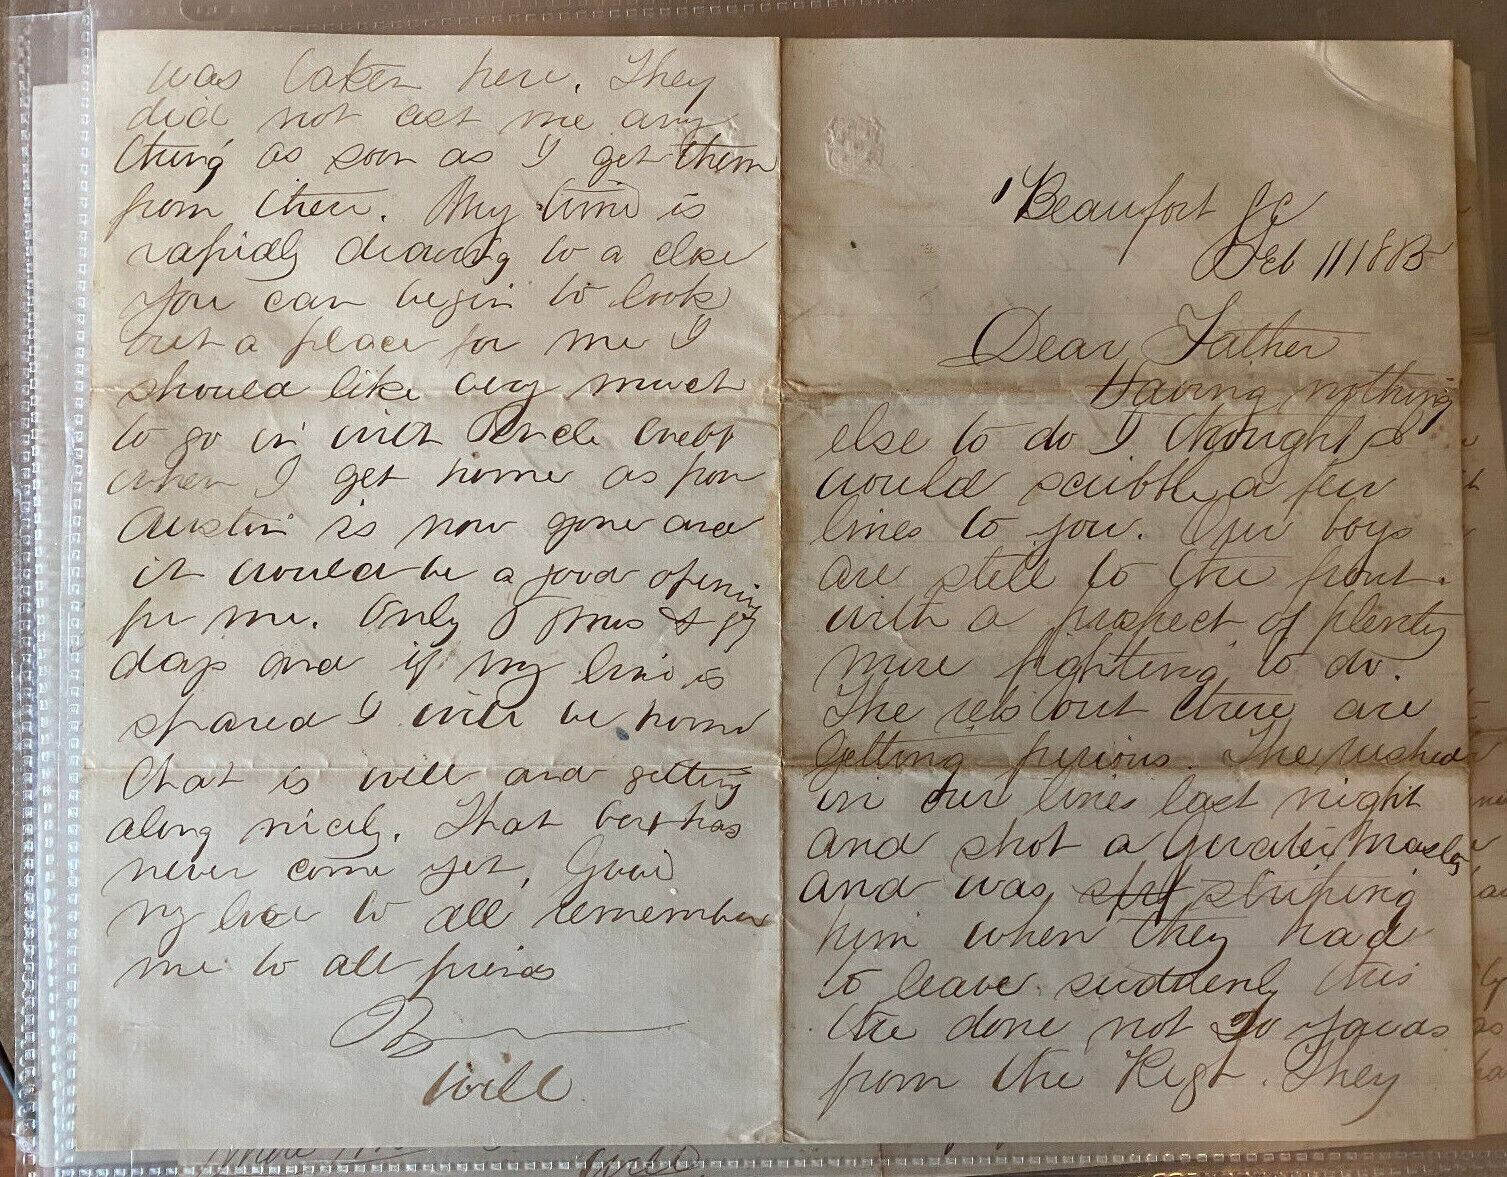 Beaufort SC
Feb 11 1865
Dear Father
Having nothing
else to do I thought I
would scribble a few
lines to you. Our boys
are still to the front.
with a prospect of plenty
more fighting to do.
The rebs out there are
getting furious. The rushed
in our lines last night
and shot a Quarter Master
and was striping
him when they had
to leave suddenly this
the done not 20 yards
from the Regt. They
was taken here. They
did not cost me any
thing as soon as I get them
from there. My time is
rapidly drawing to a close
You can begin to look
out a place for me I
should like very much
to go in with Uncle
when I get home as
Austin is now gone and
it would be a good opening
for me. Only 8 mos &
days and if my life is
spared I will be home
Chat is well and getting
along nicely. That box has
never come yet. Give
my love to all remember
me to all friends
Will